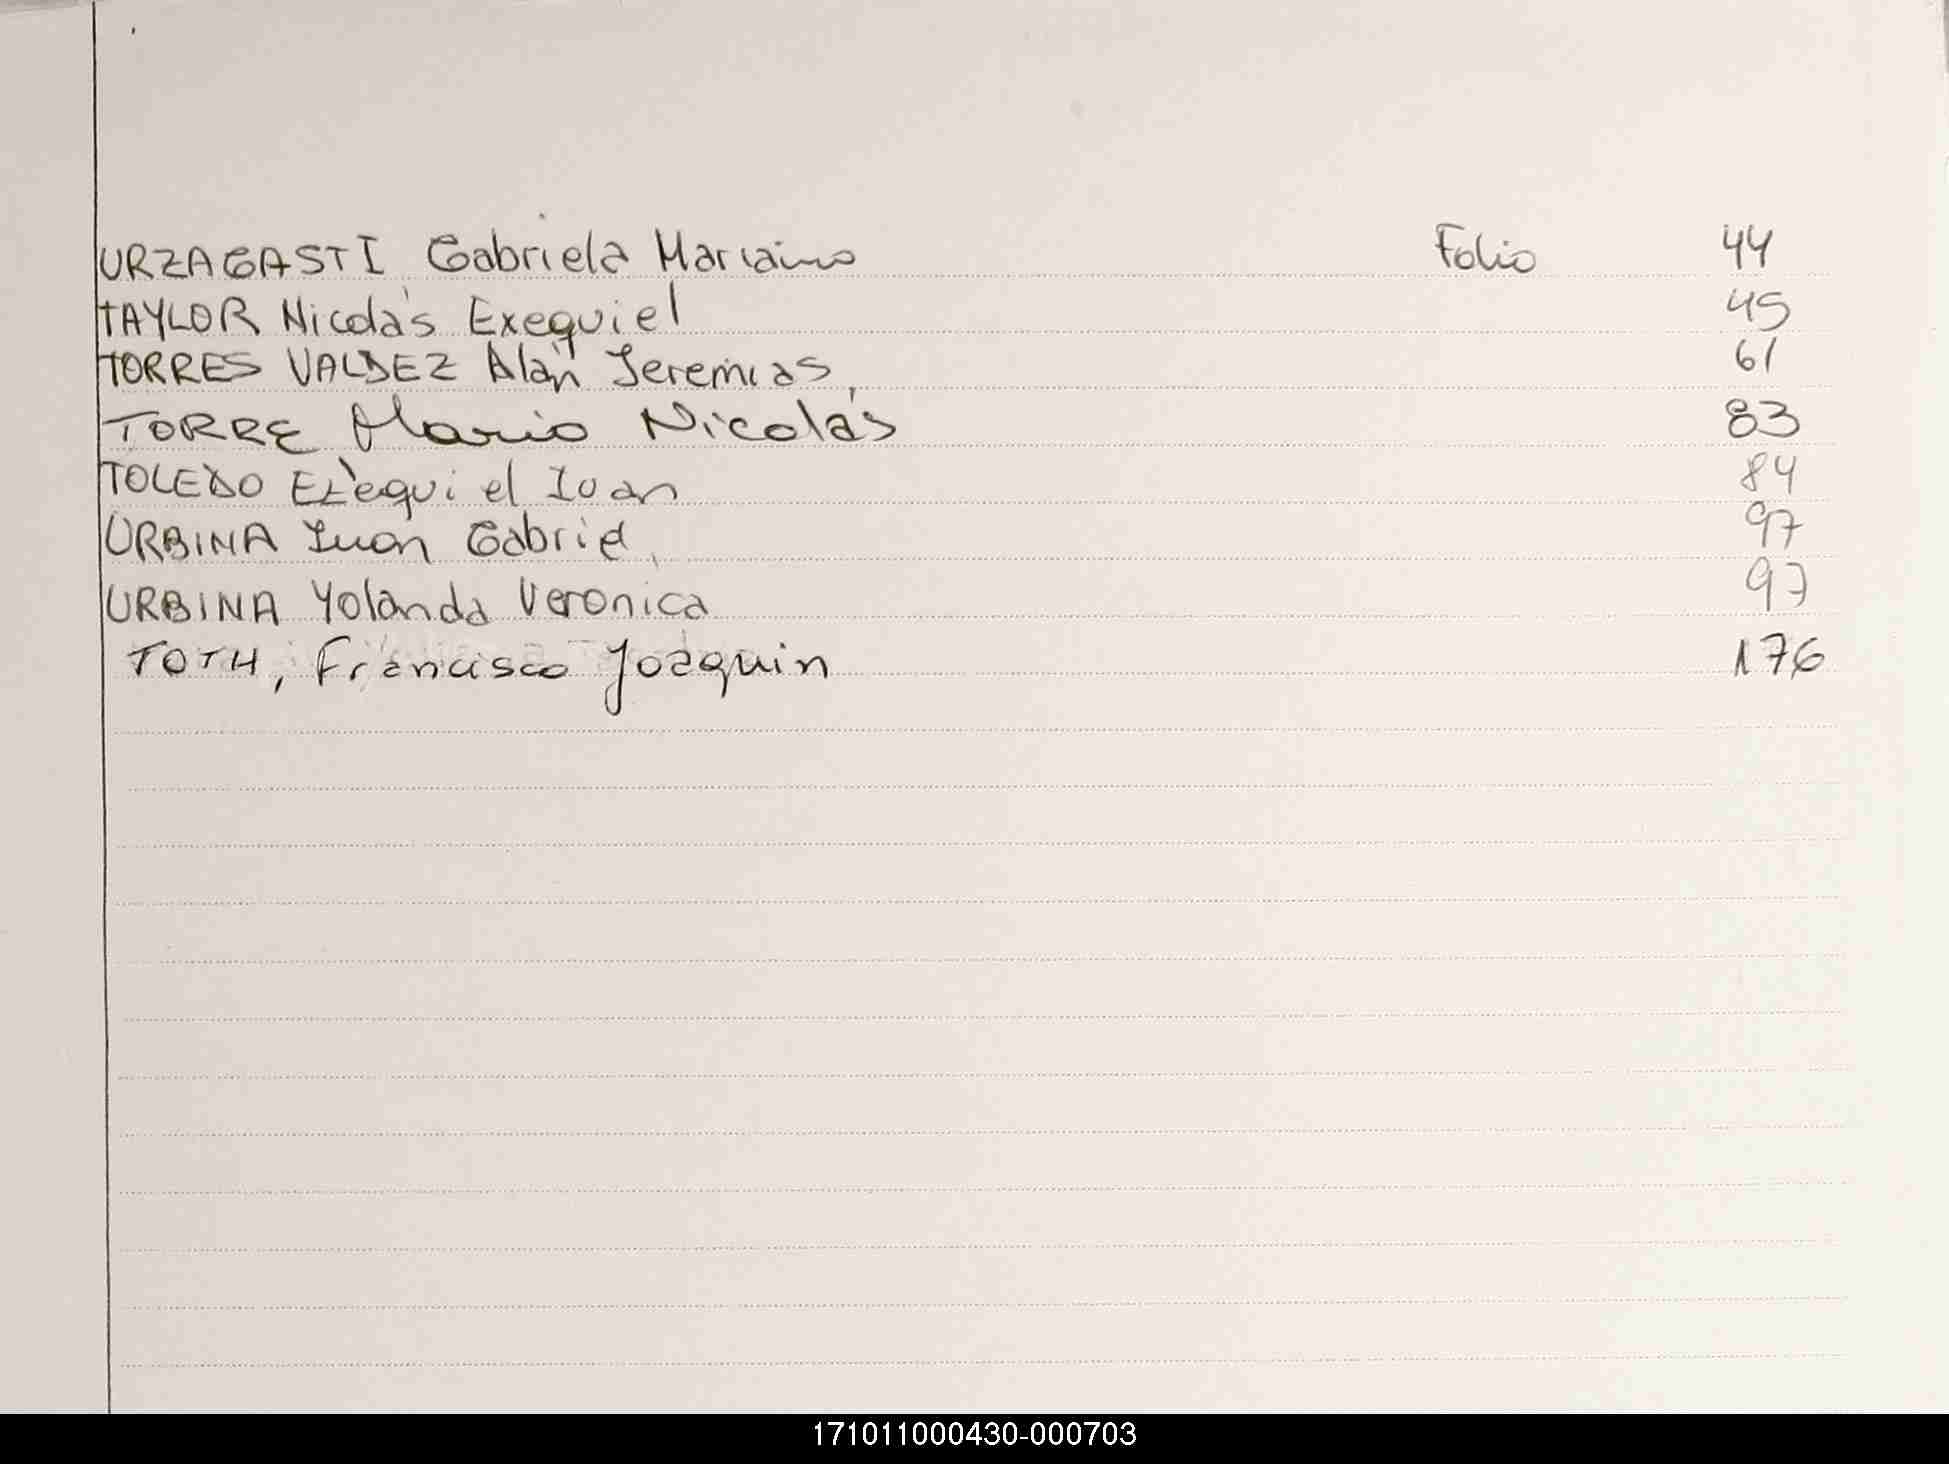 URZAGASTI Gabriela Folio 44
TAYLOR Nicolás Exequiel 45
TORRES VALDEZ Alan Jeremias, 61
TORRE Mario Nicolás 83
TOLEDO Ezequiel Ivan 84
URBINA Juan Gabriel 97
URBINA Yolanda Veronica 97
TOTH, Francisco Joaquin 176
171011000430-000703